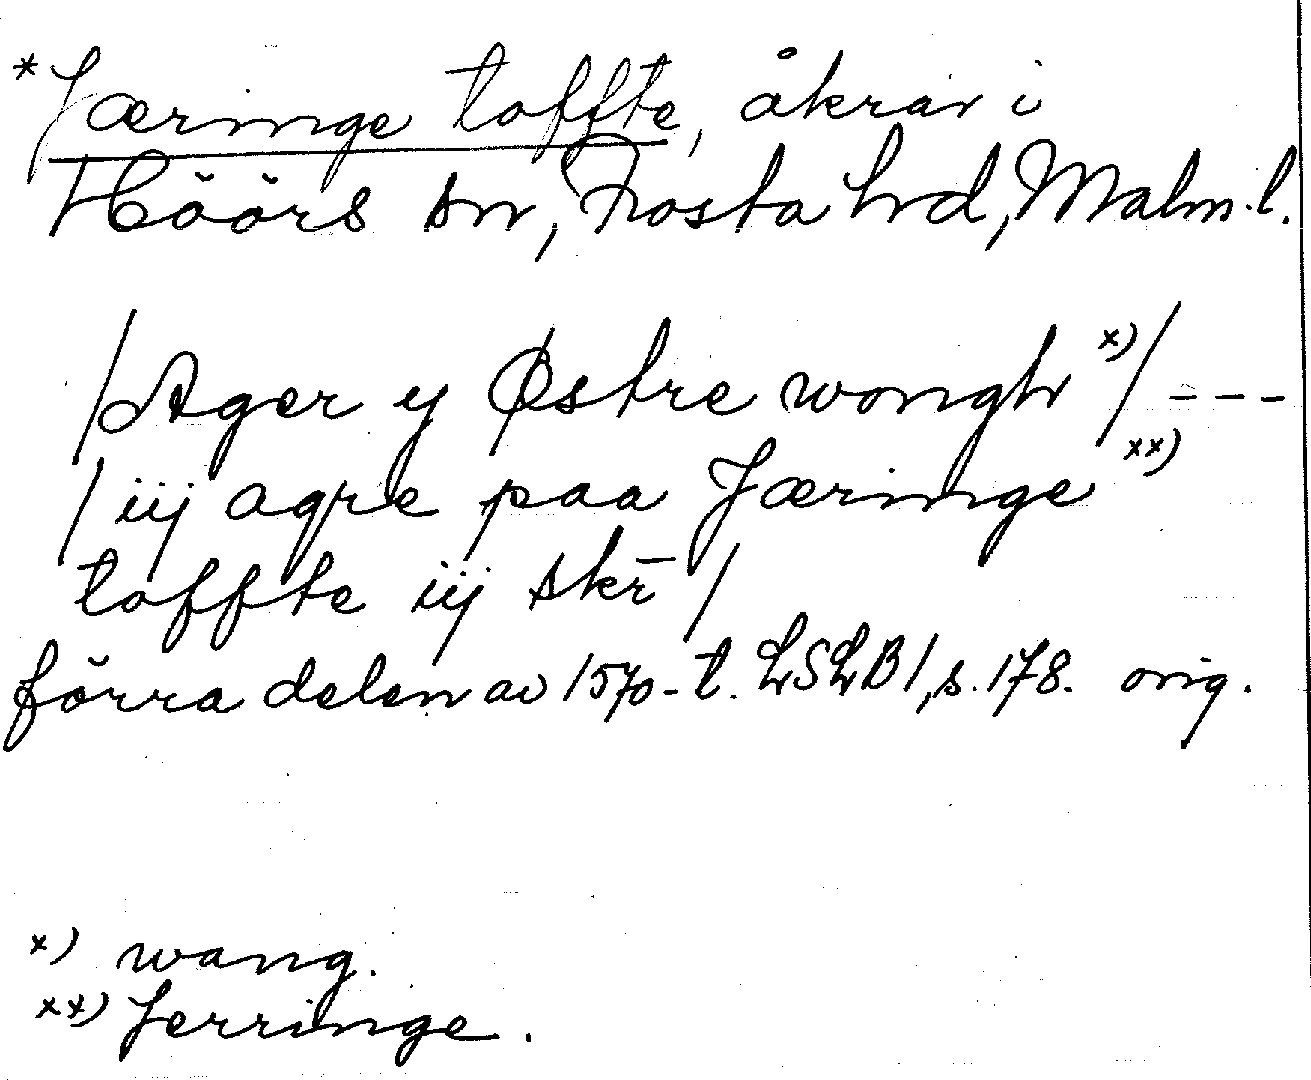 *Jæringe toffte, åkrar i
Höörs sn, Frosta hrd, Malm. l.
/Ager y Østre wongh x)/ ---
/iij agre paa Jæringe xx)
toffte iij skr̄ /
förra delen av 1570-t. LSLB 1, s. 178. orig.
x) wang.
xx) Jerringe.